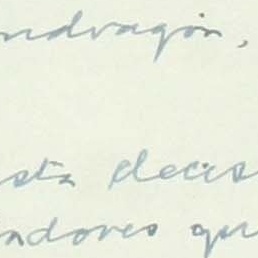 ndragón,
sta decis
adores qu